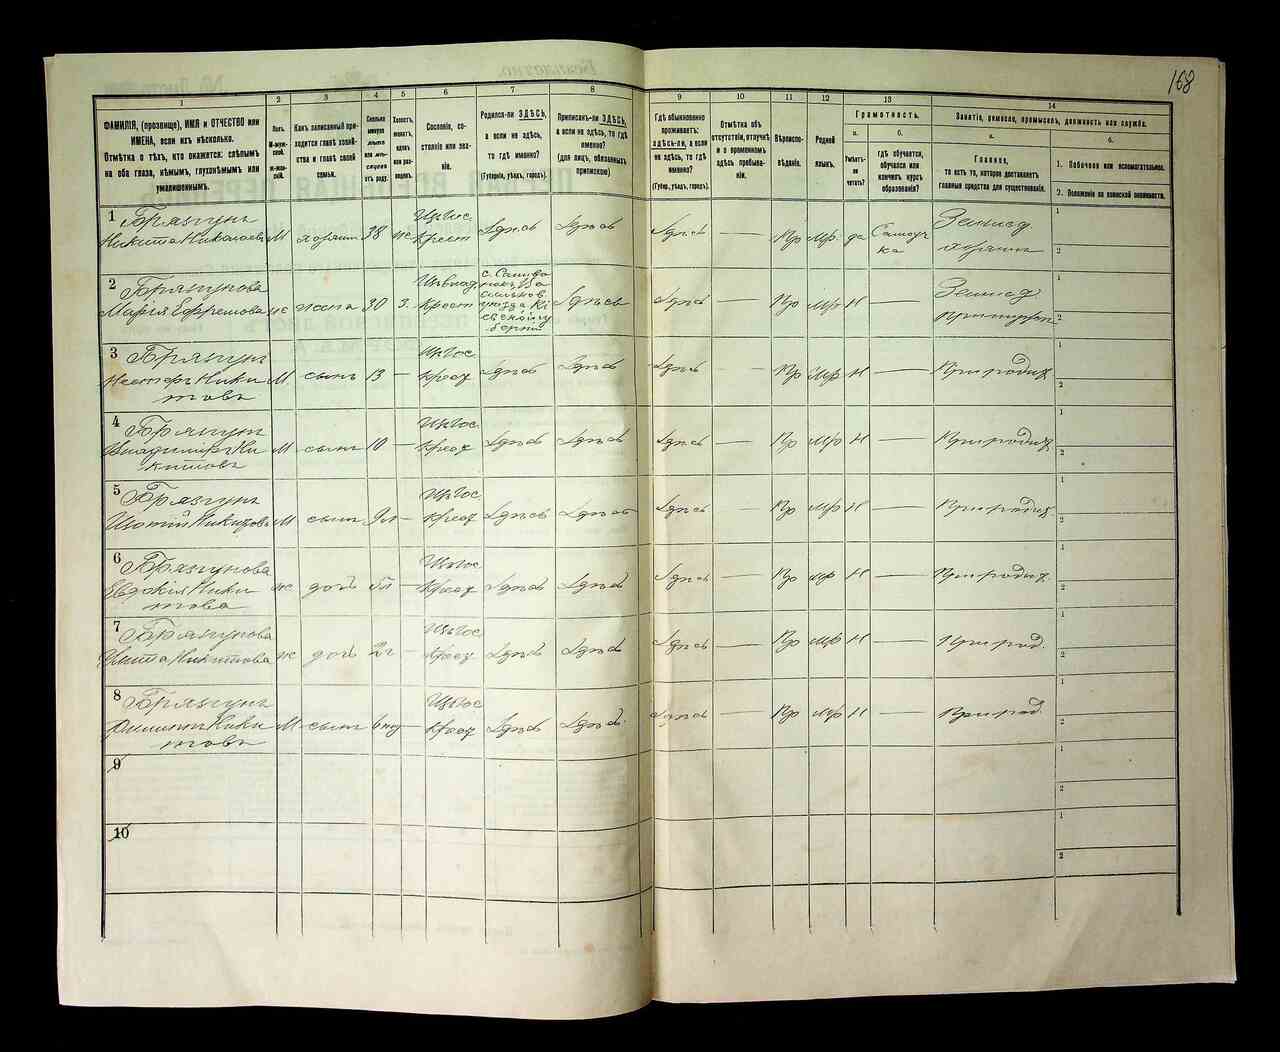 168
1 2 3 4 5 6 7 8 9 10 11 12 13 14
ФАМИЛІЯ, (прозвище), ИМЯ и ОТЧЕСТВО или
ИМЕНА, если ихъ нѣсколько.
Отмѣтка о тѣхъ, кто окажется: слѣпымъ
на оба глаза, нѣмымъ, глухонѣмымъ или
умалишеннымъ.
Полъ.
М-муж-
ской.
Ж-жен-
скій.
Какъ записанный при-
ходится главѣ хозяй-
ства и главѣ своей
семьи.
Сколько
минуло
лѣтъ
или мѣ-
сяцевъ
отъ роду.
Холостъ,
женатъ,
вдовъ
или раз-
веденъ.
Сословіе, со-
стояніе или зва-
ніе.
Родился-ли ЗДѢСЬ,
а если не здѣсь,
то гдѣ именно?
(Губернія, уѣздъ, городъ).
Приписанъ-ли ЗДѢСЬ,
а если не здѣсь, то гдѣ
именно?
(для лицъ, обязанныхъ
припискою)
Гдѣ обыкновенно
проживаетъ:
здѣсь-ли, а если
не здѣсь, то гдѣ
именно?
(Губер., уѣздъ, городъ).
Отмѣтка объ
отсутствіи, отлучкѣ
и о временномъ
здѣсь пребыва-
ніи.
Вѣроиспо-
вѣданіе.
Родной
языкъ.
Грамотность.
а.
Умѣетъ-
ли
читать?
б.
гдѣ обучается,
обучался или
кончилъ курсъ
образованія?
Занятіе, ремесло, промыселъ, должность или служба.
а.
Главное,
то есть то, которое доставляетъ
главныя средства для существованія.
б.
1. Побочное или вспомогательное.
2. Положеніе по воинской повинности.
1 Брязгунъ
Никита Николаевъ М хозяинъ 38 же Крест Здѣсь Здѣсь Здѣсь — Пр Мр да Самоучка Землед хозяинъ 1 2
2 Брязгунова
Марія Ефремова же жена 30 З. Крест Здѣсь Здѣсь — Пр Мр Н — Землед 1 2
3 Брязгунъ
Нестеръ Никитовъ М сынъ 13 — Здѣсь Здѣсь Здѣсь — Пр Мр Н — При родит 1 2
4 Брязгунъ
Владимиръ Никитовъ М сынъ 10 — Здѣсь Здѣсь Здѣсь — Пр Мр Н — При родит 1 2
5 Брязгунъ
Никитовъ М сынъ 9л — Здѣсь Здѣсь Здѣсь — Пр Мр Н — При родит 1 2
6 Брязгунова
Евдокія Никитова же дочь 5л — Здѣсь Здѣсь Здѣсь — Пр Мр Н — При родит 1 2
7 Брязгунова
Никитова же дочь 2г — Здѣсь Здѣсь Здѣсь — Пр Мр Н — При род. 1 2
8 Брязгунъ
Филиппъ Никитовъ М сынъ — Здѣсь Здѣсь Здѣсь — Пр Мр Н — При род 1 2
9 1 2
10 1 2